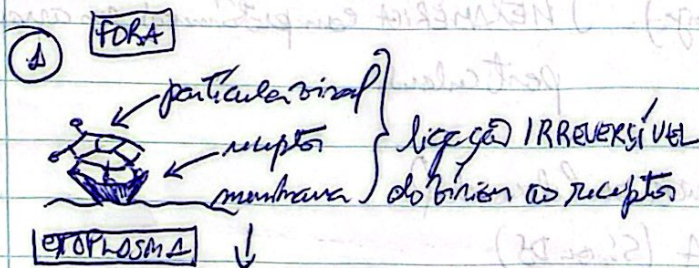 1
FORA
partícula viral
receptor
membrana
ligação IRREVERSÍVEL
do vírion ao receptor
CITOPLASMA